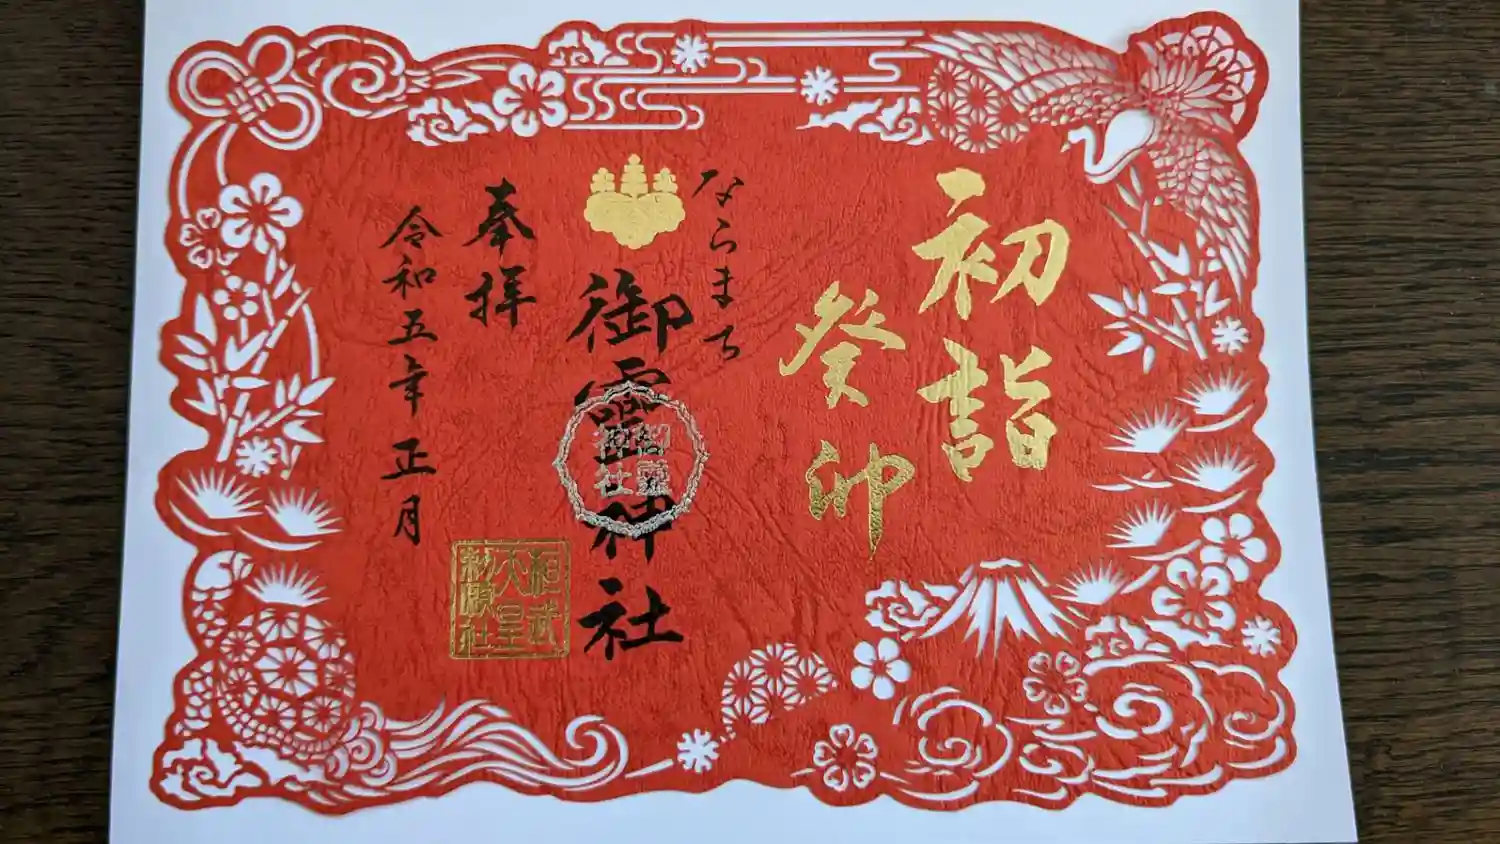 初詣
癸卯
ならまち
御霊神社
御霊神社
奉拝
桓武天皇勅願社
令和五年正月